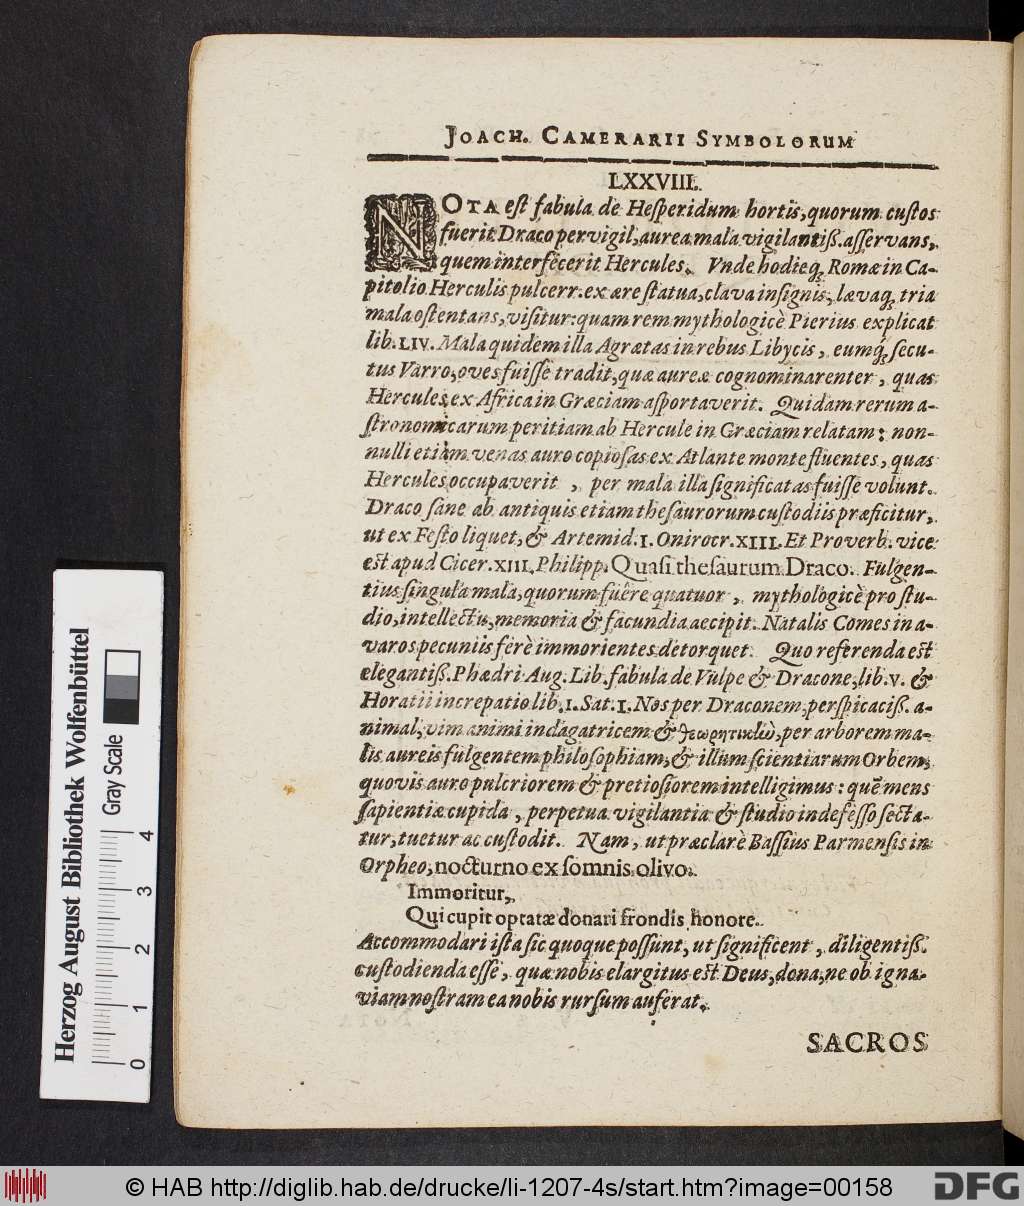 JOACH. CAMERARII SYMBOLORUM
LXXVIII.
NOTA eſt fabula de Heſperidum hortis, quorum cuſtos
fuerit Draco pervigil, aurea mala vigilantiß. aſſervans,
quem interfecerit Hercules. Vnde hodieq́ Romæ in Ca-
pitolio Herculis pulcerr. ex ære ſtatua, clava inſignis, lævaq́ tria
mala oſtentans, viſitur: quam rem mythologicè Pierius explicat
lib. LIV. Mala quidem illa Agrætas in rebus Libycis, eumq́ ſecu-
tus Varro, oves fuiſſe tradit, quæ aureæ cognominarenter, quas
Hercules ex Africa in Græciam aſportaverit. Quidam rerum a-
ſtronomicarum peritiam ab Hercule in Græciam relatam: non-
nulli etiam venas auro copioſas ex Atlante monte fluentes, quas
Hercules occupaverit, per mala illa ſignificatas fuiſſe volunt.
Draco ſane ab antiquis etiam theſaurorum cuſtodiis præficitur,
ut ex Feſto liquet, & Artemid. I. Onirocr. XIII. Et Proverb. vice
est apud Cicer. XIII. Philipp. Quaſi theſaurum Draco. Fulgen-
tius ſingula mala, quorum fuêre quatuor, mythologicè pro ſtu-
dio, intellectu, memoria & facundia accipit. Natalis Comes in a-
varos pecuniis ferè immorientes detorquet. Quo referenda est
elegantiß. Phædri Aug. Lib. fabula de Vulpe & Dracone, lib. V. &
Horatii increpatio lib. I. Sat. I. Nos per Draconem, perſpicaciß. a-
nimal, vim animi indagatricem & θεωρητικὼ, per arborem ma-
lis aureis fulgentem philoſophiam, & illum ſcientiarum Orbem,
quovis auro pulcriorem & pretioſiorem intelligimus: quẽ mens
ſapientiæ cupida, perpetua vigilantia & ſtudio indefeſſo ſecta-
tur, tuetur ac cuſtodit. Nam, ut præclarè Baſſius Parmenſis in
Orpheo, nocturno ex ſomnis olivo.
Immoritur,
Qui cupit optatæ donari frondis honore.
Accommodari iſta ſic quoque poſſunt, ut ſignificent, diligentiß.
cuſtodienda eſſe, quæ nobis elargitus est Deus, dona, ne ob igna-
viam noſtram ea nobis rurſum auferat.
SACROS
Herzog August Bibliothek Wolfenbüttel
Gray Scale
0 1 2 3 4
© HAB http://diglib.hab.de/drucke/li-1207-4s/start.htm?image=00158
DFG